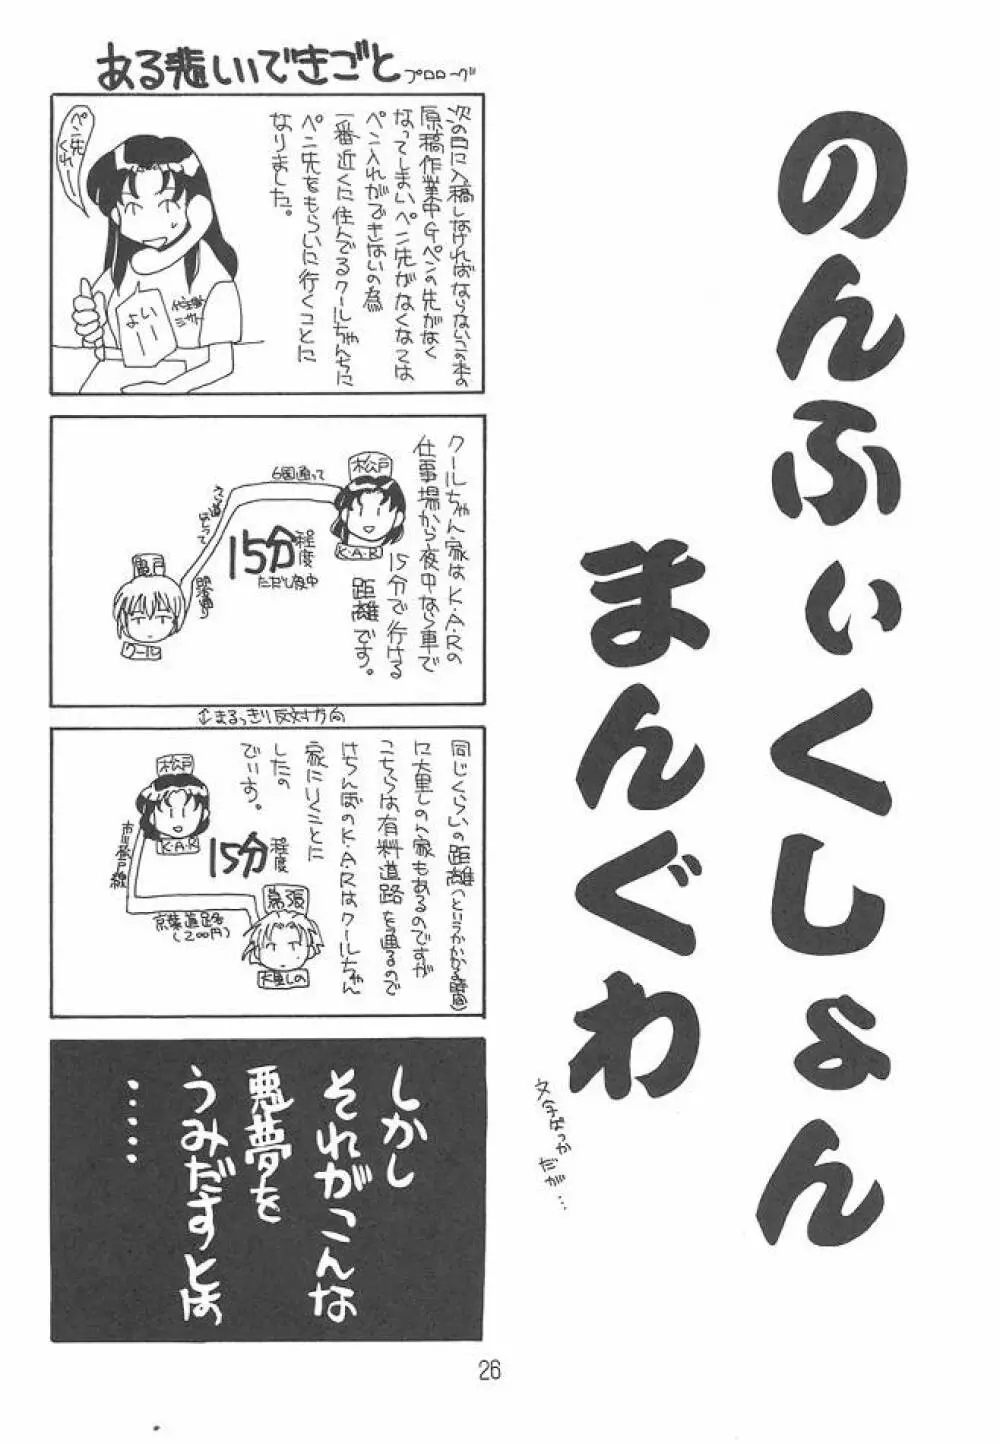 のんふぃくしょん
まんぐわ
文字ばっか
だが…
ある悲しいできごと プロローグ
次の日に入稿しなければならないこの本の
原稿作業中Gペンの先がなく
なってしまいペン先がなくなては
ペン入れができないの為
一番近くに住んでるクールちゃんちに
ペン先をもらいに行くことに
なりました。
ペン先
くれー
よいー
ミサト
クールちゃん家はK・A・Rの
仕事場から夜中なら車で
15分で行ける
距離です。
松戸
K・A・R
6国通って
15分程度
ただし夜中
亀有
クール
↕まるっきり反対方向
同じくらいの距離(というかかかる時間)
に大里しの家もあるのですが
こちらは有料道路を通るので
けちんぼのK・A・Rはクールちゃん
家にいくことに
したの
でいす。
松戸
K・A・R
市川松戸線
15分程度
京葉道路
(200円)
幕張
大里しの
しかし
それがこんな
悪夢を
うみだすとは
……
26